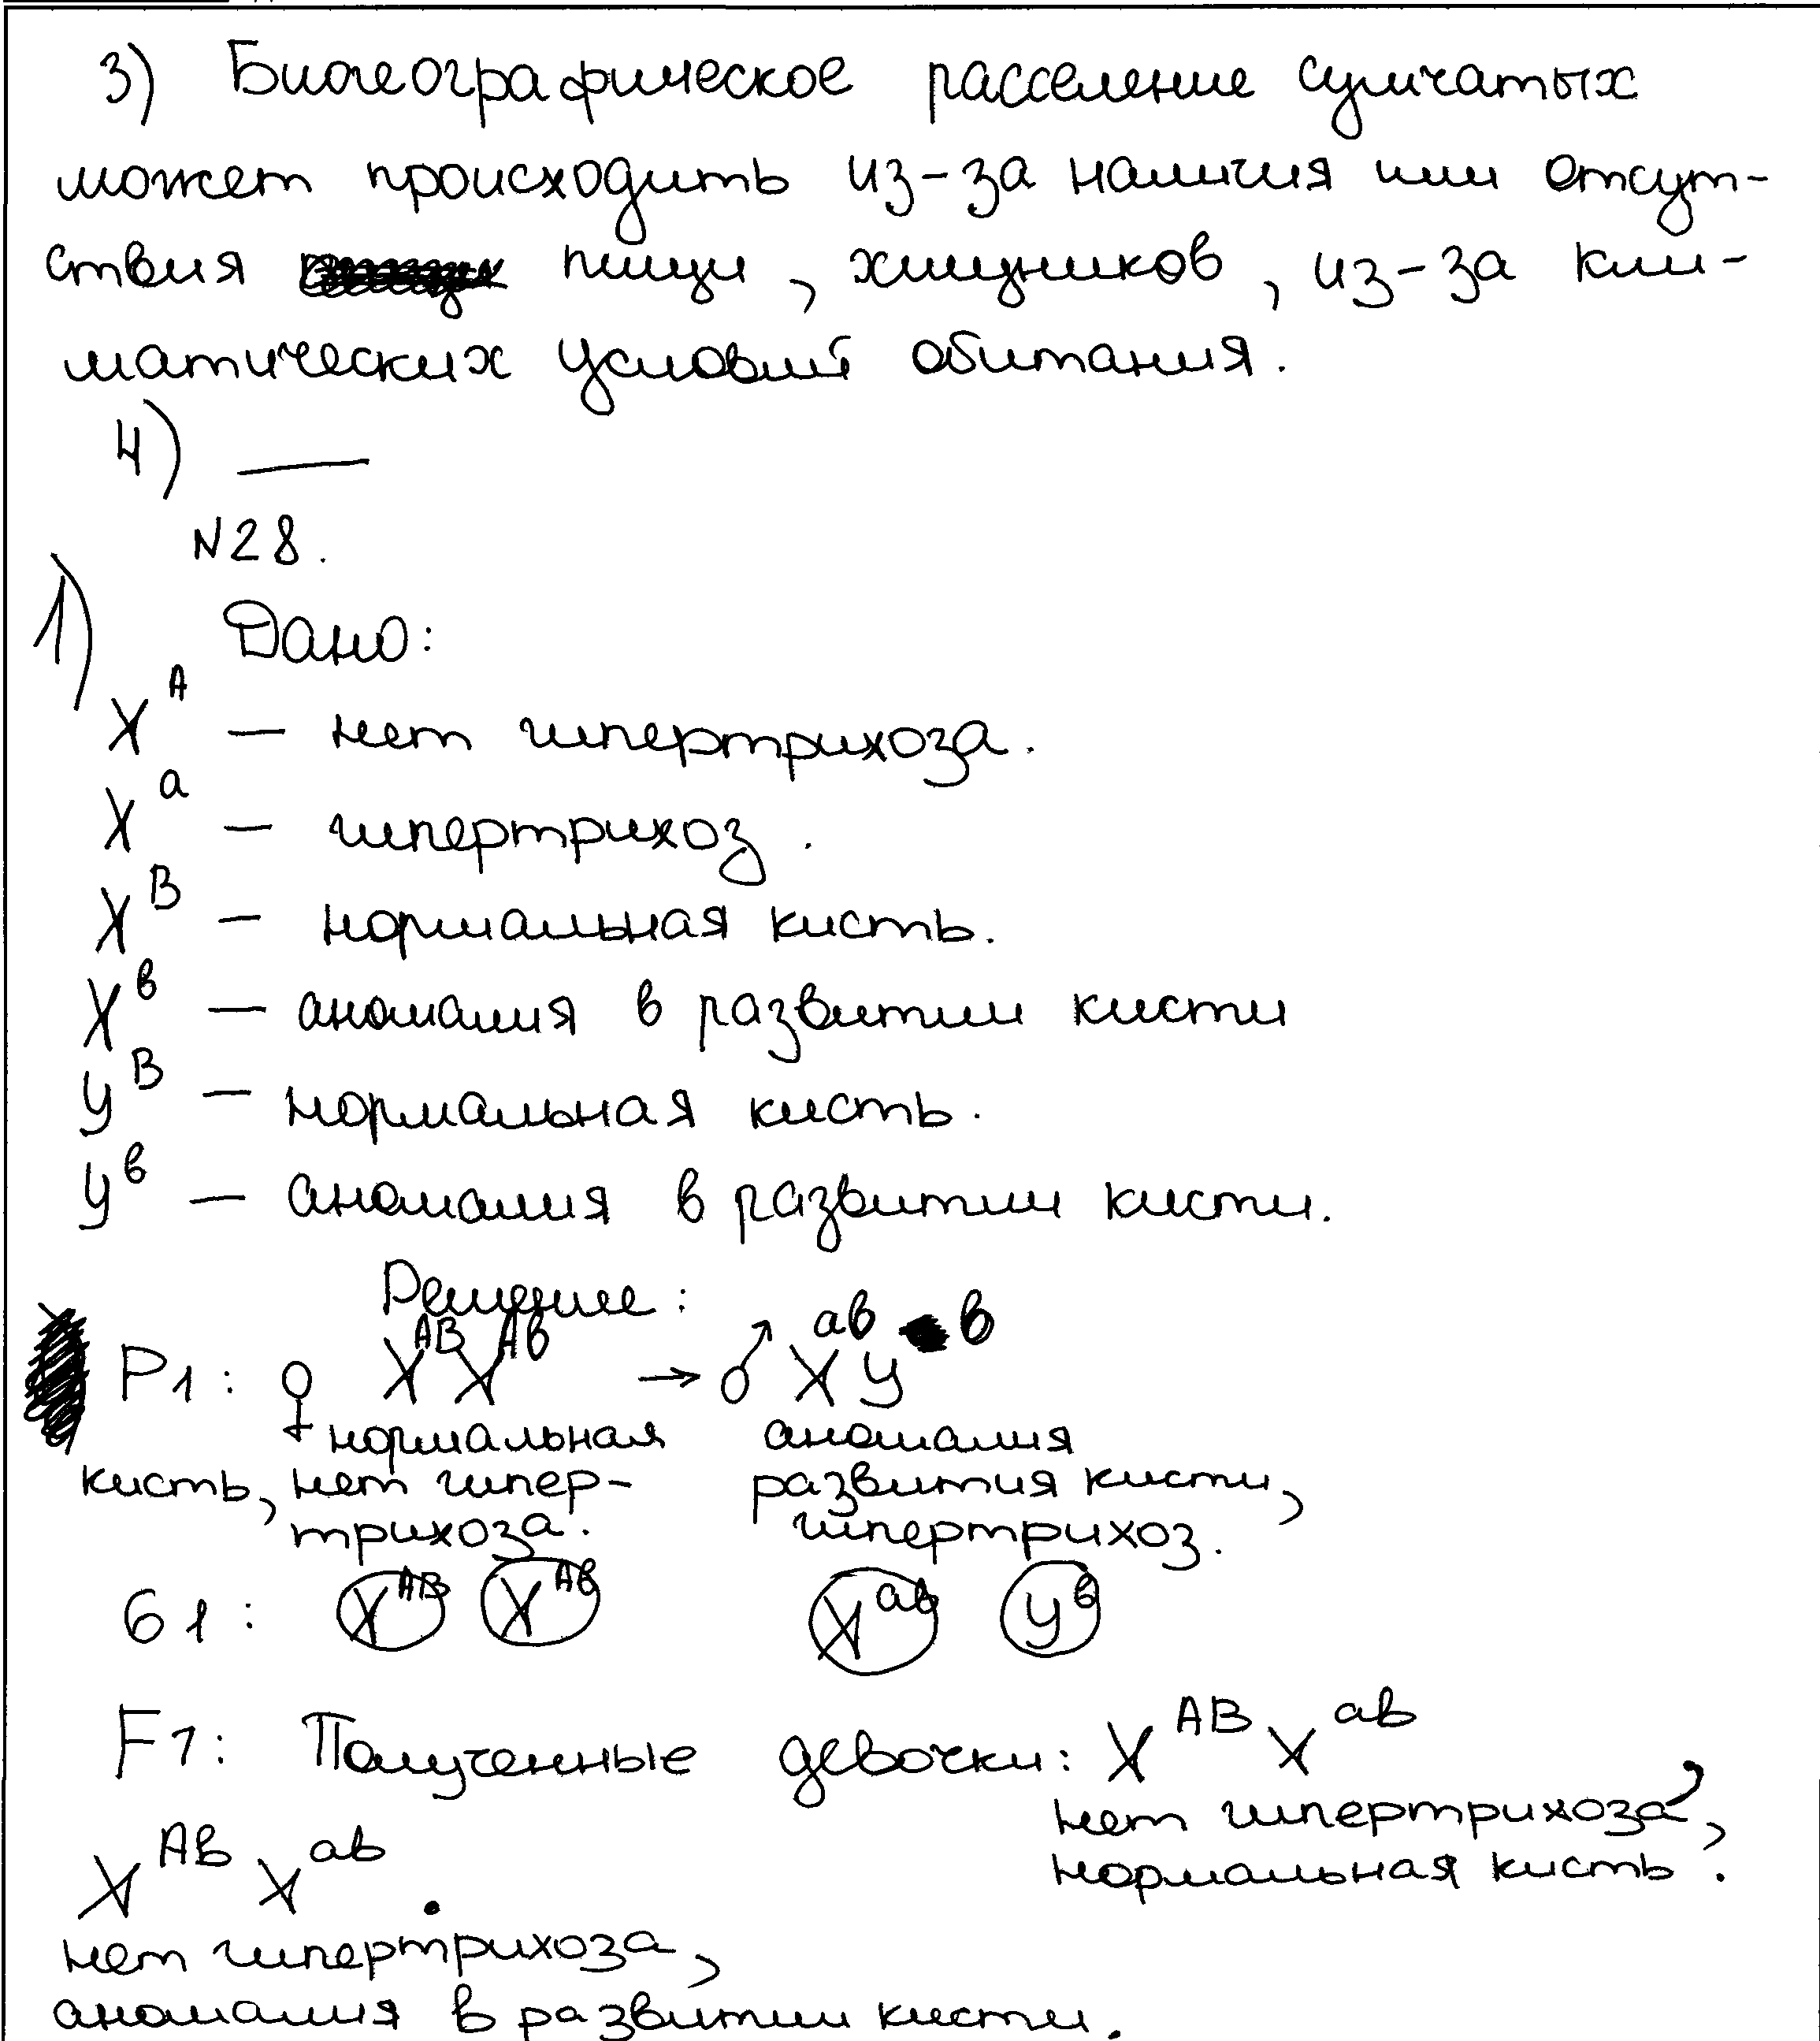 3) Биогеографическое расселение сумчатых
может происходить из-за наличия или отсут-
ствия пищи, хищников, из-за кли-
матических условий обитания.
4) —
N28.
1) Дано:
X^A — нет гипертрихоза.
X^a — гипертрихоз.
X^B — нормальная кисть.
X^в — аномалия в развитии кисти
У^B — нормальная кисть.
У^в — аномалия в развитии кисти.
Решение:
P1: ♀ X^AB X^Aв → ♂ X^aв У^в
нормальная аномалия
кисть, нет гипер- развития кисти,
трихоза. гипертрихоз.
G1: X^AB X^Aв X^aв У^в
F1: Полученные девочки: X^AB X^aв
нет гипертрихоза,
нормальная кисть.
X^Aв X^aв.
нет гипертрихоза,
аномалия в развитии кисти.